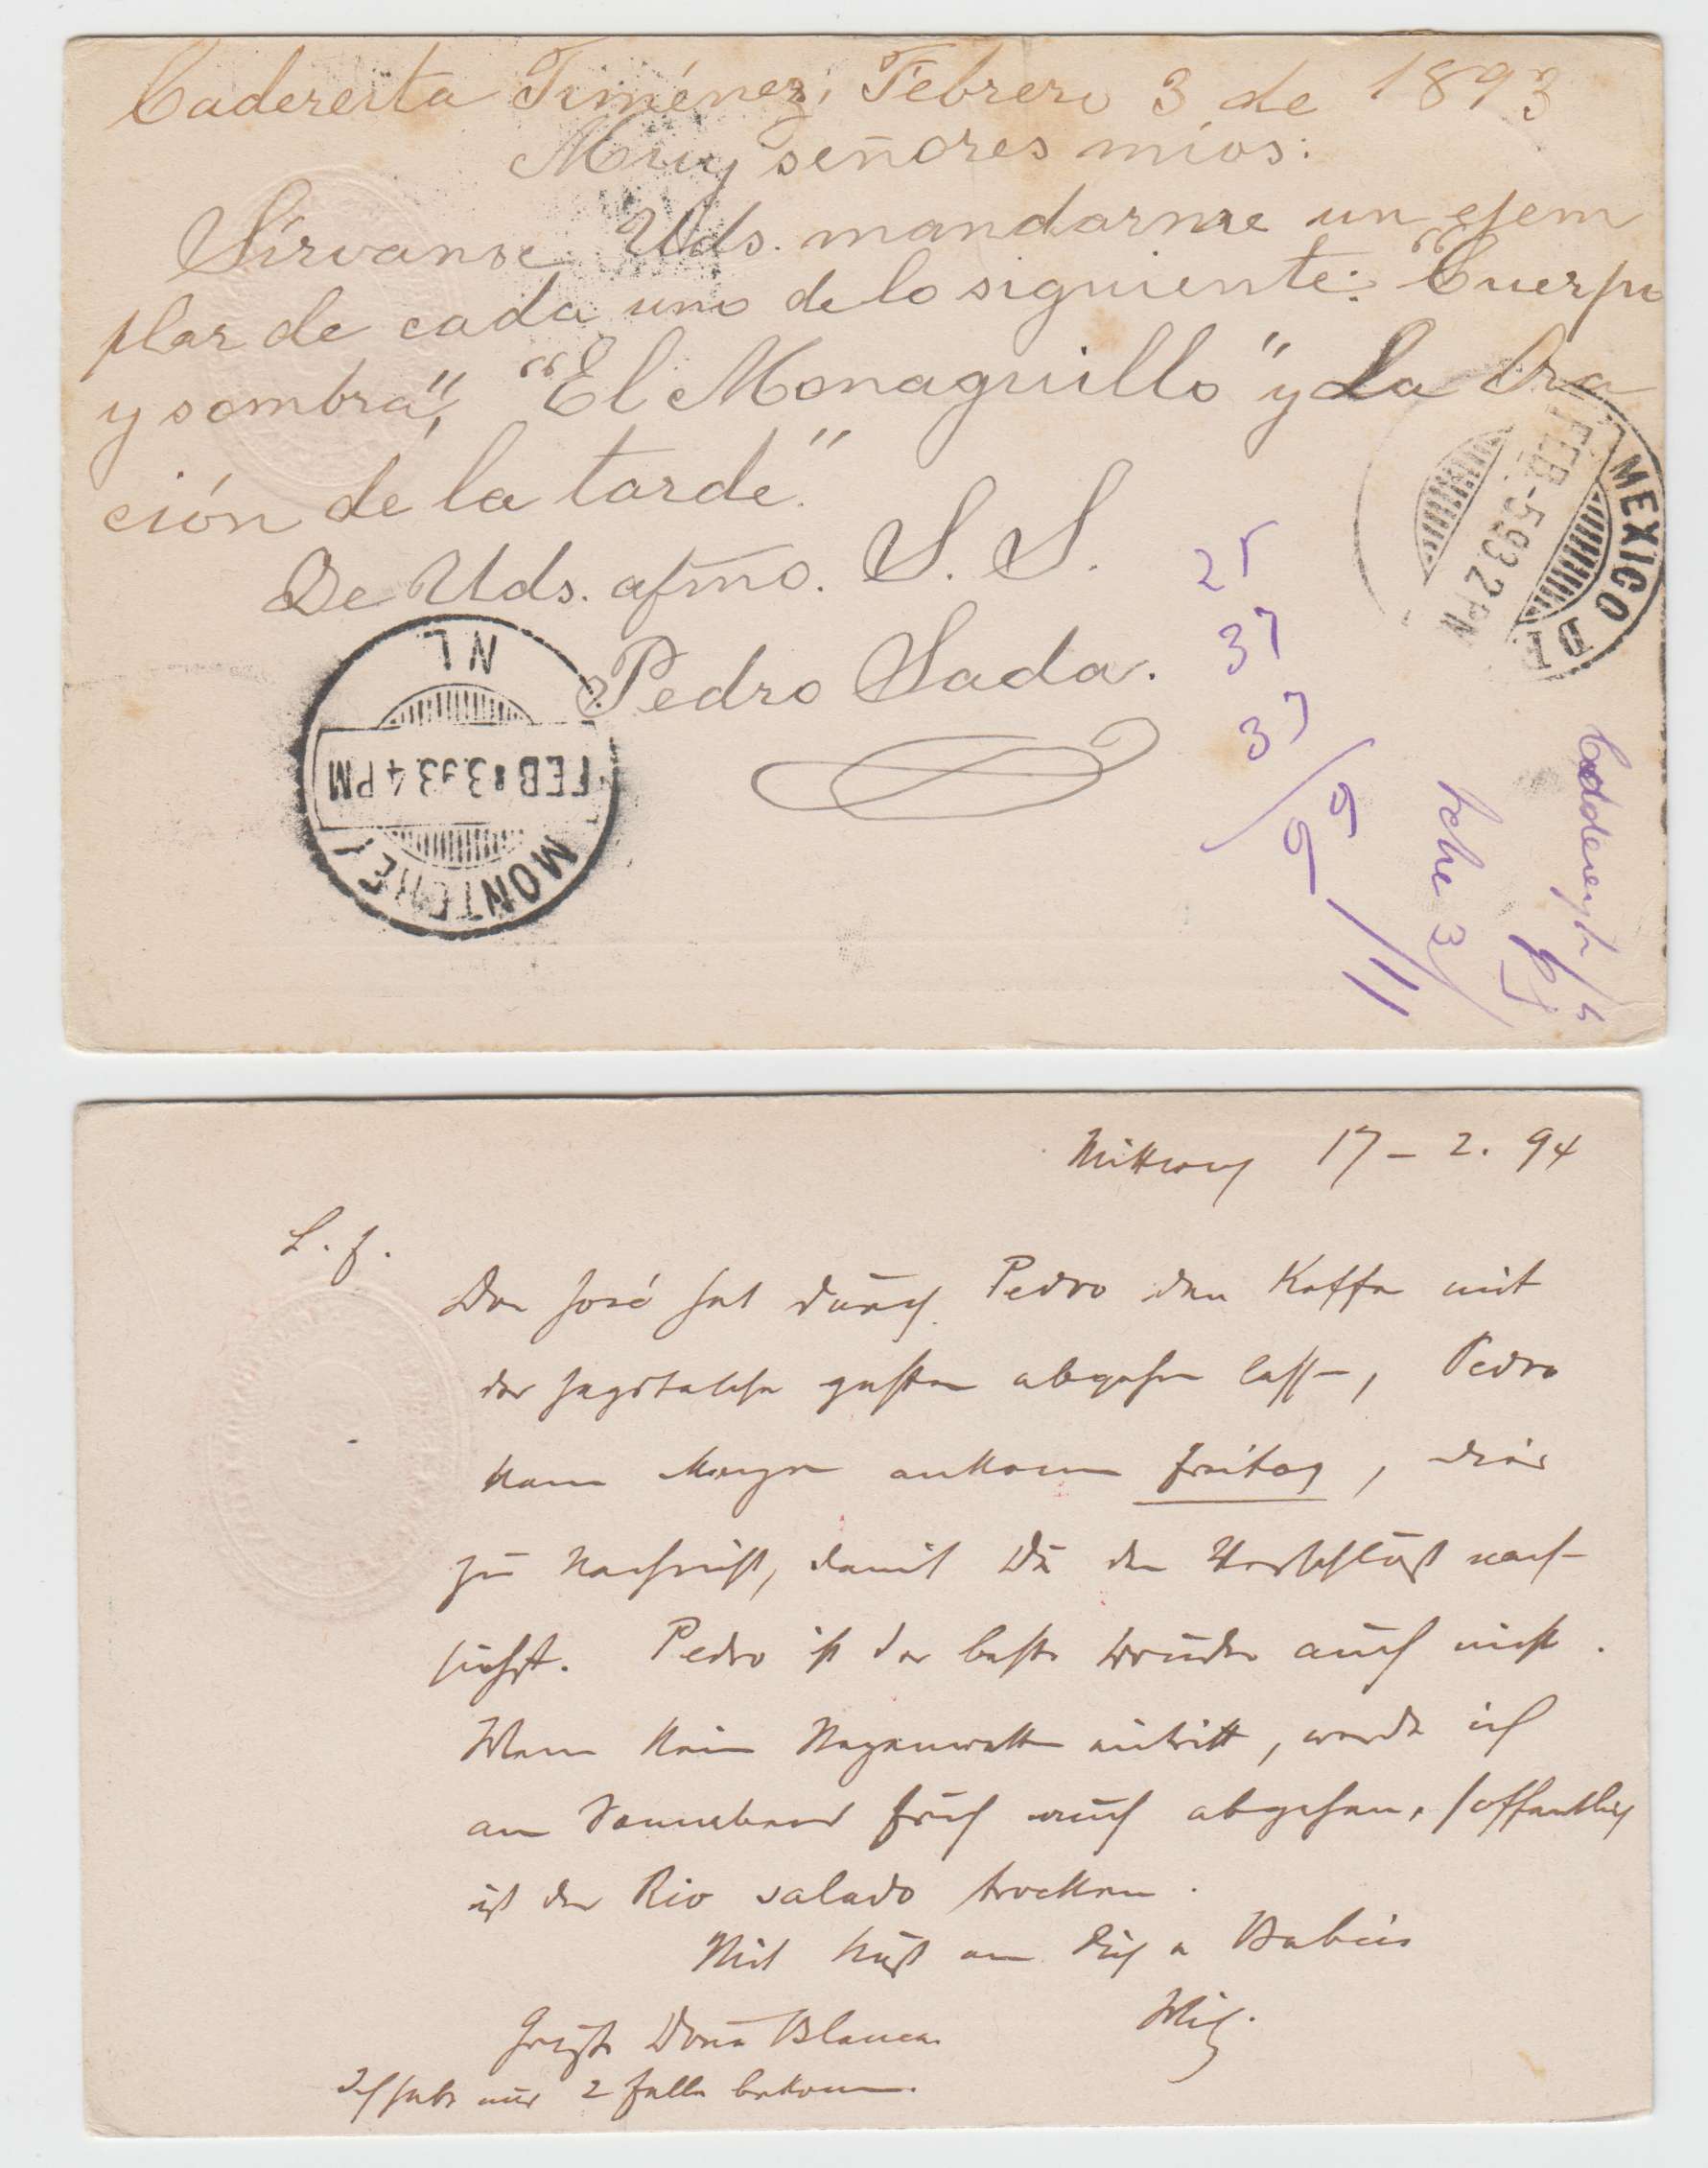 Cadereita Jiménez, Febrero 3 de 1893
Muy señores mios:
Sírvanse Uds. mandarme un ejem
plar de cada uno de lo siguiente: "Cuerpo
y sombra", "El Monaguillo" y La Ora
ción de la tarde"
De Uds. afmo. S. S.
Pedro Sada.
MEXICO D F
FEB-5.93.2 PM
MONTERREY
FEB 3.93.4 PM
N L
25
37
37
99
11
Mittwoch 17-2.94
L. F.
Don José hat durch Pedro den Koffer mit
der Jagdtasche gestern abgehen lassen, Pedro
kann Morgen ankommen Freitag, dies
zur Nachricht, damit Du den Verschluß nach-
siehst. Pedro ist der beste Bruder auch nicht.
Wenn kein Regenwetter eintritt, werde ich
am Sonnabend früh auch abgehen, hoffentlich
ist der Rio salado trocken.
Mit Kuß an Dich u Babies
Grüße Dona Blanca.
Ich habe nur 2 Felle bekommen.